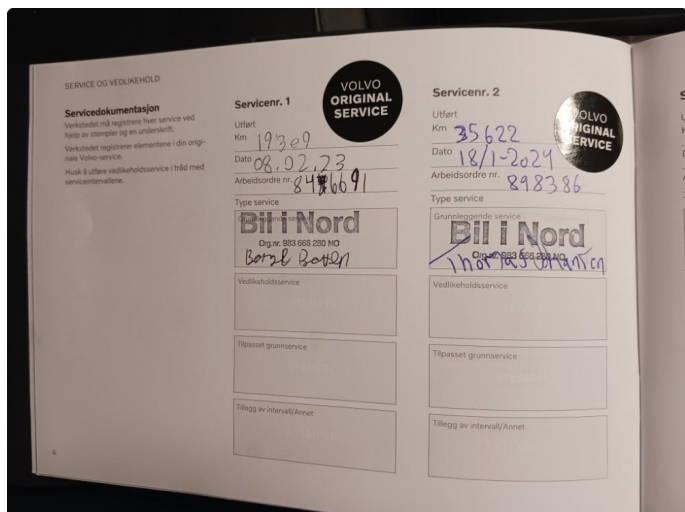 SERVICE OG VEDLIKEHOLD
Servicedokumentasjon
Verkstedet må registrere hver service ved
hjelp av stempler og en underskrift.
Verkstedet registrerer elementene i din origi-
nale Volvo-service.
Husk å utføre vedlikeholdsservice i tråd med
serviceintervallene.
6
Servicenr. 1
VOLVO
ORIGINAL
SERVICE
Utført
Km 19309
Dato 08.02.23
Arbeidsordre nr.
Type service
Grunnleggende service
Bil i Nord
Org.nr. 983 666 280 NO
Vedlikeholdsservice
Tilpasset grunnservice
Tillegg av intervall/Annet
Servicenr. 2
VOLVO
ORIGINAL
SERVICE
Utført
Km 35622
Dato 18/1-2024
Arbeidsordre nr. 898386
Type service
Grunnleggende service
Bil i Nord
Org.nr. 983 666 280 NO
Vedlikeholdsservice
Tilpasset grunnservice
Tillegg av intervall/Annet